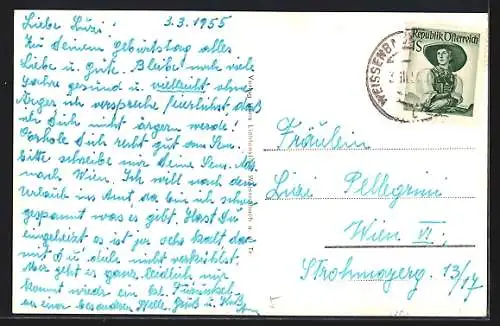 Liebe Luzi! 3.3.1955
Zu Deinem Geburtstag alles
Liebe u. Gute. Bleibe noch viele
Jahre gesund u. vielleicht ohne
Ärger ich verspreche feierlichst daß
ich Dich nicht ärgern werde!
Erhole Dich recht gut am Sem.
bitte schreibe mir Deine Sem.
nach Wien. Ich will nach dem
Urlaub ins Amt, da bin ich schon
gespannt was es gibt. Hast Du
eingeheizt es ist jetzt sehr kalt dar
mit Du dich nicht verkühlst.
Mir geht es ganz leidlich mir
kommt wieder ein
an einer besonderen Stelle. Gruß u. Kuß
Republik Österreich
1 S
WEISSENBA
Fräulein
Luzi Pellegrini
Wien VI.
Strohmayerg. 13/17